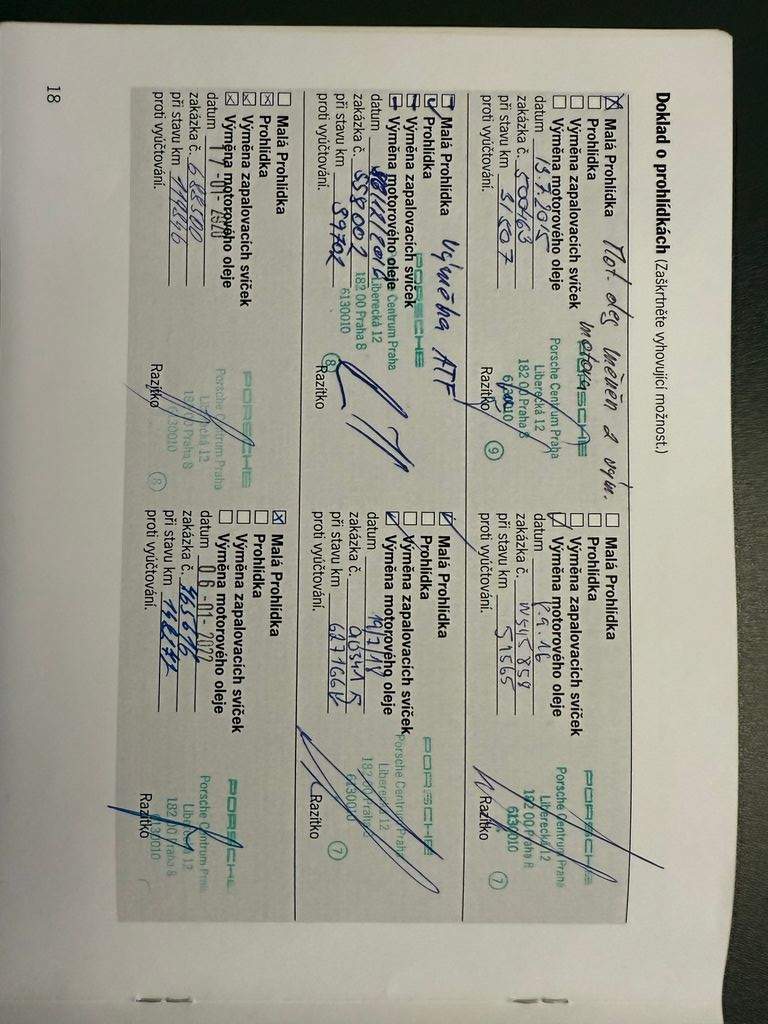 Doklad o prohlídkách (Zaškrtněte vyhovující možnost.)
Mot. olej měněn z vým.
motoru
Malá Prohlídka
Prohlídka
Výměna zapalovacích svíček
Výměna motorového oleje
datum 13.7.2015
zakázka č. 500463
při stavu km 31507
proti vyúčtování.
PORSCHE
Porsche Centrum Praha
Liberecká 12
182 00 Praha 8
6130010
Razítko
9
Malá Prohlídka
Prohlídka
Výměna zapalovacích svíček
Výměna motorového oleje
datum 2.9.16
zakázka č.
při stavu km 51565
proti vyúčtování.
PORSCHE
Porsche Centrum Praha
Liberecká 12
182 00 Praha 8
6130010
Razítko
7
Malá Prohlídka výměna ATF
Prohlídka
Výměna zapalovacích svíček
Výměna motorového oleje
datum
zakázka č. 558002
při stavu km 59702
proti vyúčtování.
PORSCHE
Porsche Centrum Praha
Liberecká 12
182 00 Praha 8
6130010
Razítko
8
Malá Prohlídka
Prohlídka
Výměna zapalovacích svíček
Výměna motorového oleje
datum 19/7/18
zakázka č.
při stavu km
proti vyúčtování.
PORSCHE
Porsche Centrum Praha
Liberecká 12
182 00 Praha 8
6130010
Razítko
7
Malá Prohlídka
Prohlídka
Výměna zapalovacích svíček
Výměna motorového oleje
datum 17-01-2020
zakázka č. 688500
při stavu km 114896
proti vyúčtování.
PORSCHE
Porsche Centrum Praha
Liberecká 12
182 00 Praha 8
6130010
Razítko
8
Malá Prohlídka
Prohlídka
Výměna zapalovacích svíček
Výměna motorového oleje
datum 06-01-2022
zakázka č. 765616
při stavu km
proti vyúčtování.
PORSCHE
Porsche Centrum
Liberecká 12
182 00 Praha 8
6130010
Razítko
18